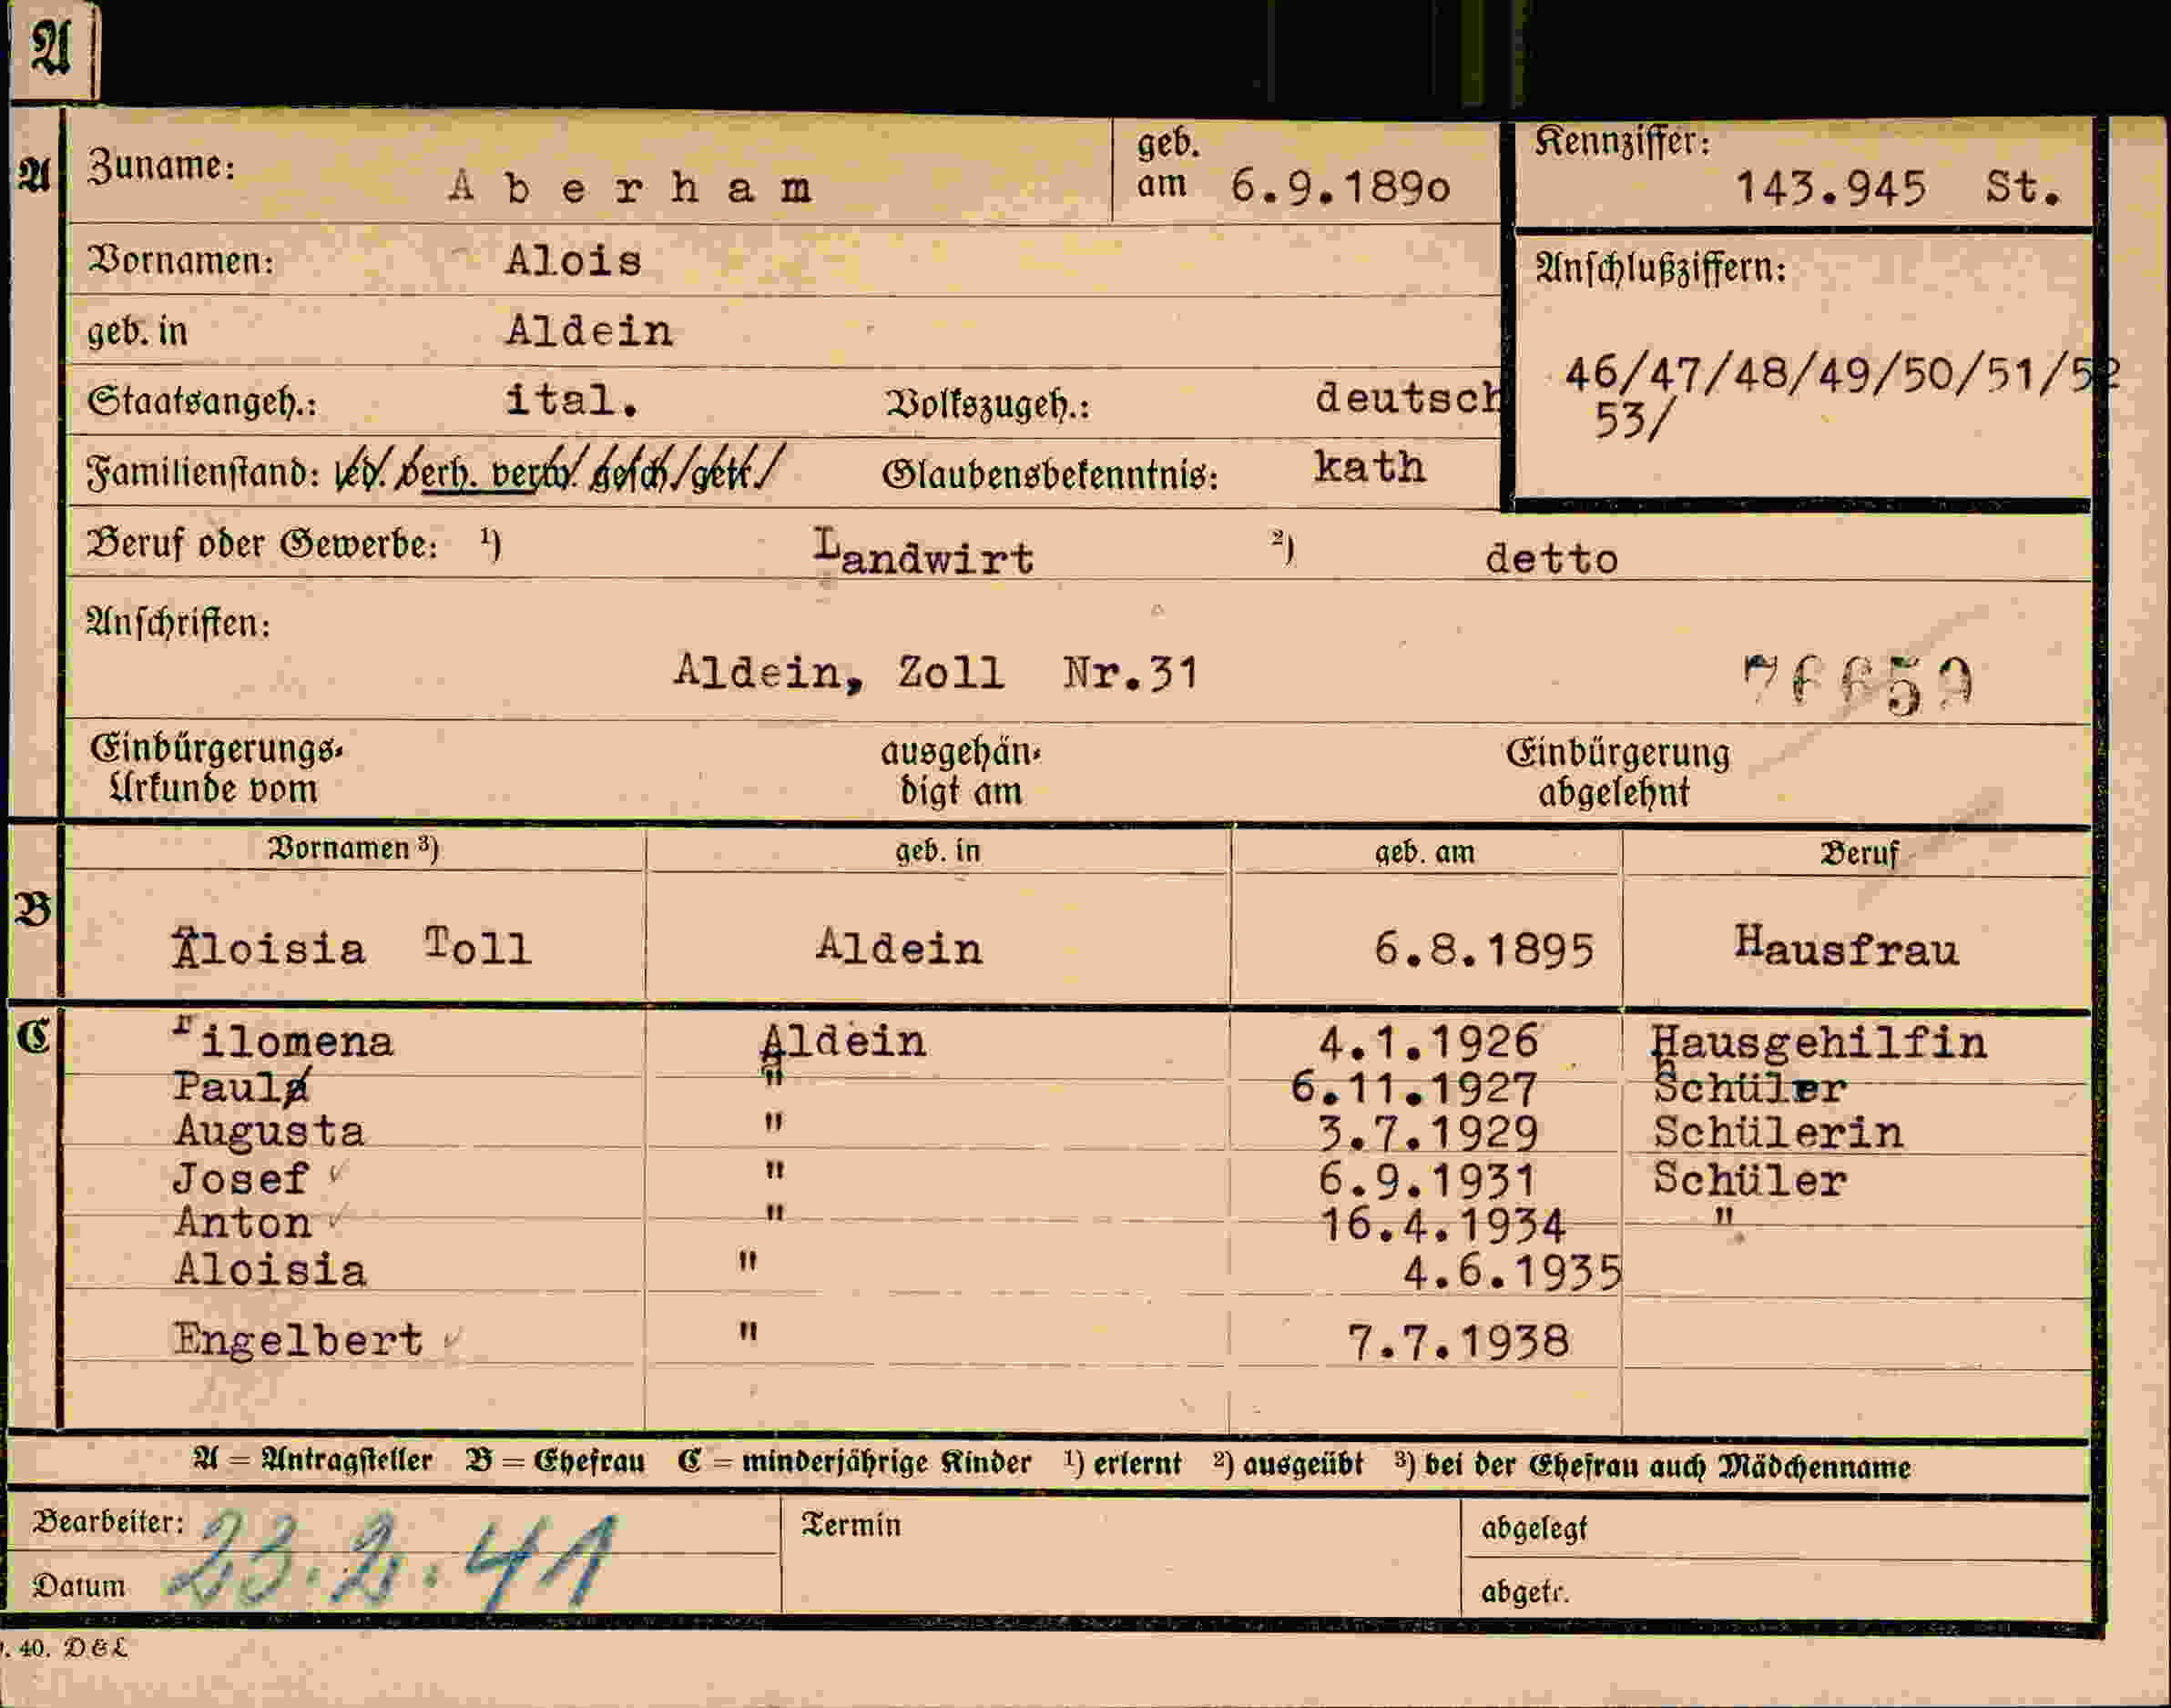 A
A
Zuname: Aberham geb. am 6.9.1890 Kennziffer: 143.945 St.
Vornamen: Alois Anschlußziffern:
geb. in Aldein
46/47/48/49/50/51/52
Staatsangeh.: ital. Volkszugeh.: deutsch
53/
Familienstand: led. verh. verw. gesch. getr. Glaubensbekenntnis: kath
Beruf oder Gewerbe: ¹) Landwirt ²) detto
Anschriften:
Aldein, Zoll Nr.31 76659
Einbürgerungs-Urkunde vom ausgehändigt am Einbürgerung abgelehnt
Vornamen ³) geb. in geb. am Beruf
B
Aloisia Toll Aldein 6.8.1895 Hausfrau
C Filomena Aldein 4.1.1926 Hausgehilfin
Paul " 6.11.1927 Schüler
Augusta " 3.7.1929 Schülerin
Josef " 6.9.1931 Schüler
Anton " 16.4.1934 "
Aloisia " 4.6.1935
Engelbert " 7.7.1938
A = Antragsteller B = Ehefrau C = minderjährige Kinder ¹) erlernt ²) ausgeübt ³) bei der Ehefrau auch Mädchenname
Bearbeiter: Termin abgelegt
23.2.41
Datum abgetr.
40. D&L